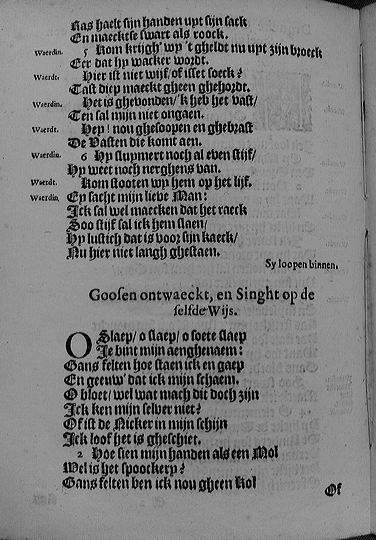 Ras haelt sijn handen upt sijn sack
En maecktse swart als roock.
Waerdin. 5 Kom krijgh' wy 't gheldt nu upt zijn broeck
Eer dat hy wacker wordt.
Waerdt. Hier ist niet wijf/ of isset soeck?
Tast diep maeckt gheen ghehordt.
Waerdin. Het is ghevonden/ 'k heb het vast/
Ten sal mijn niet ongaen.
Waerdt. Hey! nou ghesoopen en ghebrast
De Vasten die komt aen.
Waerdin. 6 Hy sluymert noch al even stijf/
Hy weet noch nerghens van.
Waerdt. Kom stooten wy hem op het lijf.
Waerdin. Ey sacht mijn lieve Man:
Ick sal wel maecken dat het raeckt
Soo stijf sal ick hem slaen/
Hy lustich dat is voor sijn kaeck/
Nu hier niet langh ghestaen.
Sy loopen binnen.
Goosen ontwaeckt, en Singht op de
selfde Wijs.
O Slaep/ o slaep/ o soete slaep
Je bint mijn aenghenaem:
Gans selten hoe staen ick en gaep
En geeuw' dat ick mijn schaem.
O bloet/ wel wat mach dit doch zijn
Ick ken mijn selver niet?
Of ist de Nicker in mijn schijn
Ick loof het is gheschiet.
2 Hoe sien mijn handen als een Mol
Wel is het spoockery?
Gans selten ben ick nou gheen kol
Of